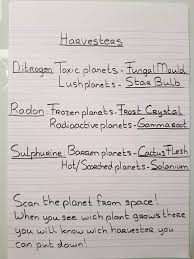 Harvesters
Nitrogen Toxic planets - Fungal Mould
Lush planets - Star Bulb
Radon Frozen planets - Frost Crystal
Radioactive planets - Gammaroot
Sulphurine Barren planets - Cactus Flesh
Hot/Scorched planets - Solanium
Scan the planet from space!
When you see wich plant grows there
you will know wich harvester you
can put down!